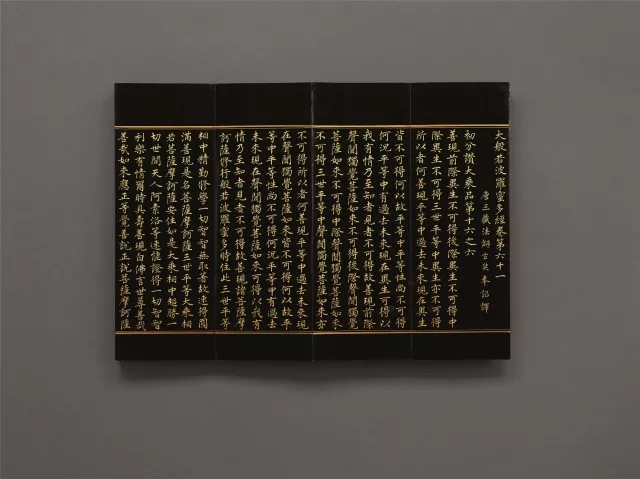 大般若波羅蜜多經卷第六十一
唐三藏法師玄奘奉詔譯
初分讚大乘品第十六之六
善現前際異生不可得後際異生不可得中
際異生不可得三世平等中異生亦不可得
所以者何善現平等中過去未來現在異生
皆不可得何以故平等中平等性尚不可得
何況平等中有過去未來現在異生可得以
我有情乃至知者見者不可得故善現前際
聲聞獨覺菩薩如來不可得後際聲聞獨覺
菩薩如來不可得中際聲聞獨覺菩薩如來
不可得三世平等中聲聞獨覺菩薩如來亦
不可得所以者何善現平等中過去未來現
在聲聞獨覺菩薩如來皆不可得何以故平
等中平等性尚不可得何況平等中有過去
未來現在聲聞獨覺菩薩如來可得以我有
情乃至知者見者不可得故善現菩薩摩
訶薩修行般若波羅蜜多時住此三世平等
相中精勤修學一切智智無取著故速得圓
滿善現是名菩薩摩訶薩三世平等大乘相
若菩薩摩訶薩安住如是大乘相中超勝一
切世間天人阿素洛等速能證得一切智智
利樂有情爾時具壽善現白佛言世尊善哉
善哉如來應正等覺善說正說菩薩摩訶薩